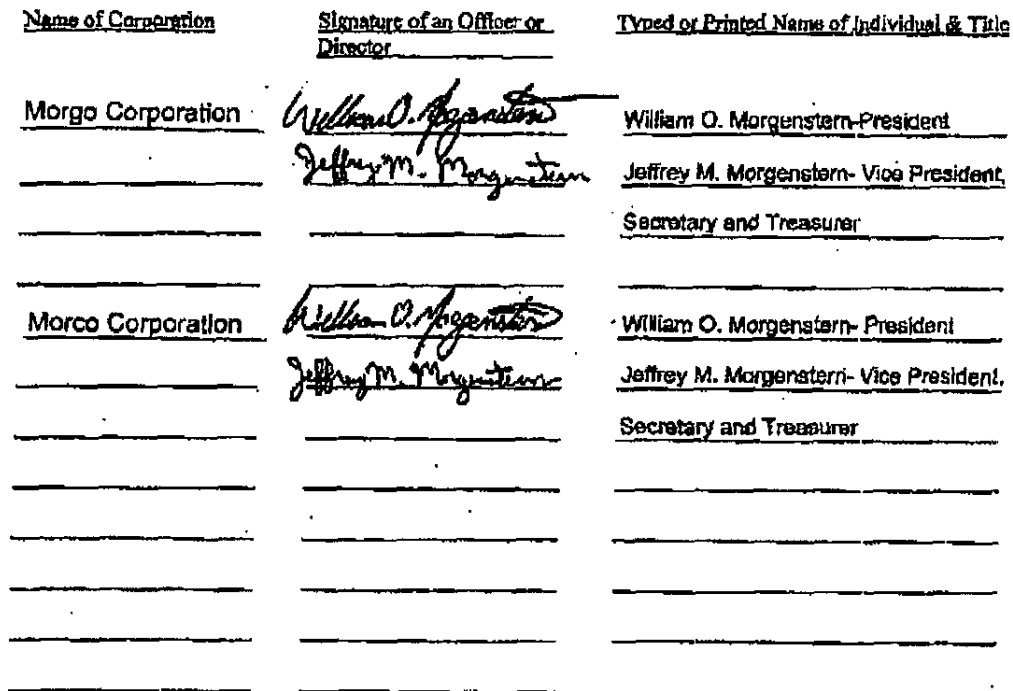 Name of Corporation Signature of an Officer or Director Typed or Printed Name of Individual & Title
Morgo Corporation William O. Morgenstern William O. Morgenstern-President
Jeffrey M. Morgenstern Jeffrey M. Morgenstern- Vice President,
Secretary and Treasurer
Morco Corporation William O. Morgenstern William O. Morgenstern- President
Jeffrey M. Morgenstern Jeffrey M. Morgenstern- Vice President,
Secretary and Treasurer